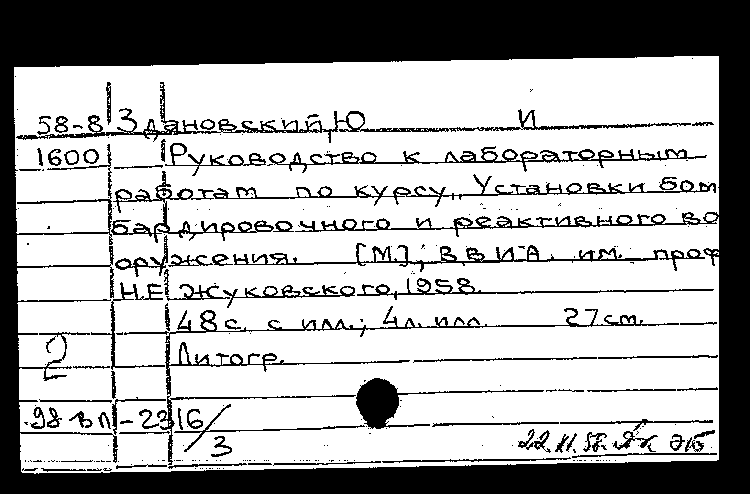 58-8 Здановский, Ю И
1600 Руководство к лабораторным
работам по курсу „Установки бом
бардировочного и реактивного во
оружения. [М], ВВИА им. проф
Н.Е Жуковского, 1958.
48 с. с илл.; 4 л. илл. 27 см.
2 Литогр.
98 вл - 2316/3
22.11.58.